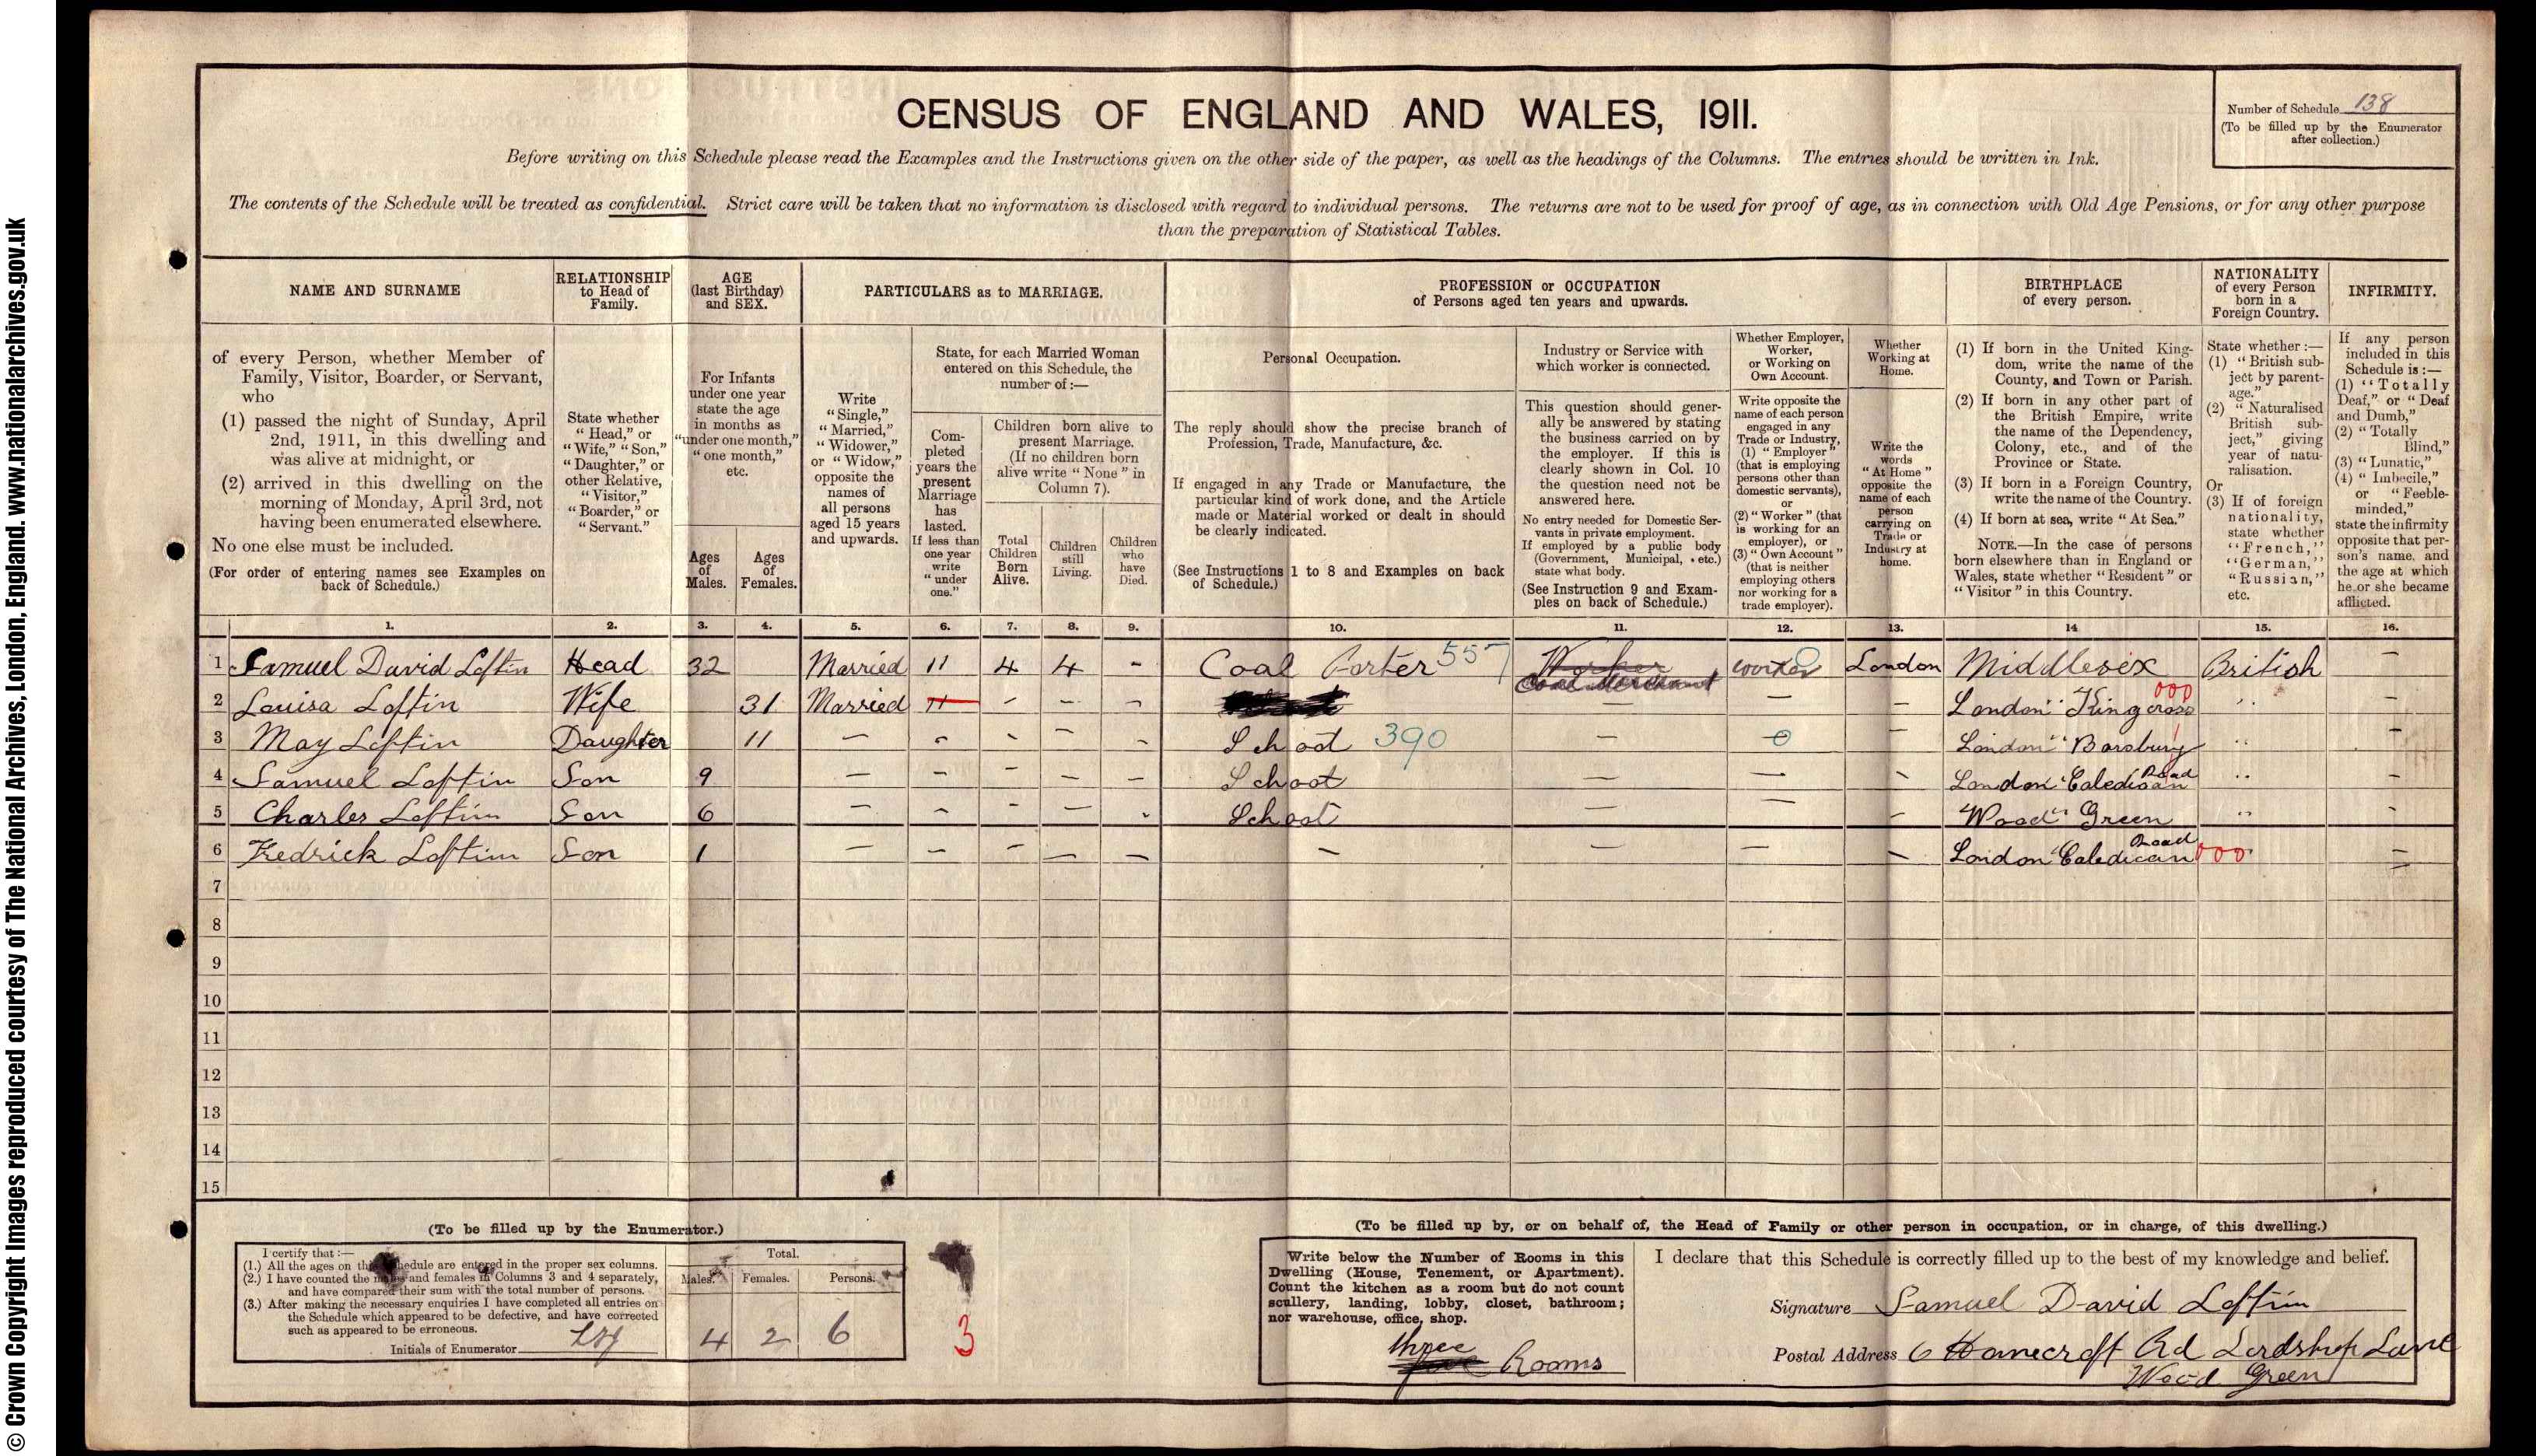 © Crown Copyright Images reproduced courtesy of The National Archives, London, England. www.nationalarchives.gov.uk
CENSUS OF ENGLAND AND WALES, 1911.
Number of Schedule 138
(To be filled up by the Enumerator
after collection.)
Before writing on this Schedule please read the Examples and the Instructions given on the other side of the paper, as well as the headings of the Columns. The entries should be written in Ink.
The contents of the Schedule will be treated as confidential. Strict care will be taken that no information is disclosed with regard to individual persons. The returns are not to be used for proof of age, as in connection with Old Age Pensions, or for any other purpose
than the preparation of Statistical Tables.
NAME AND SURNAME
of every Person, whether Member of
Family, Visitor, Boarder, or Servant,
who
(1) passed the night of Sunday, April
2nd, 1911, in this dwelling and
was alive at midnight, or
(2) arrived in this dwelling on the
morning of Monday, April 3rd, not
having been enumerated elsewhere.
No one else must be included.
(For order of entering names see Examples on
back of Schedule.)
RELATIONSHIP
to Head of
Family.
State whether
"Head," or
"Wife," "Son,"
"Daughter," or
other Relative,
"Visitor,"
"Boarder," or
"Servant."
AGE
(last Birthday)
and SEX.
For Infants
under one year
state the age
in months as
"under one month,"
"one month,"
etc.
Ages
of
Males.
Ages
of
Females.
PARTICULARS as to MARRIAGE.
Write
"Single,"
"Married,"
"Widower,"
or "Widow,"
opposite the
names of
all persons
aged 15 years
and upwards.
State, for each Married Woman
entered on this Schedule, the
number of :—
Com-
pleted
years the
present
Marriage
has
lasted.
If less than
one year
write
"under
one."
Children born alive to
present Marriage.
(If no children born
alive write "None" in
Column 7).
Total
Children
Born
Alive.
Children
still
Living.
Children
who
have
Died.
PROFESSION or OCCUPATION
of Persons aged ten years and upwards.
Personal Occupation.
The reply should show the precise branch of
Profession, Trade, Manufacture, &c.
If engaged in any Trade or Manufacture, the
particular kind of work done, and the Article
made or Material worked or dealt in should
be clearly indicated.
(See Instructions 1 to 8 and Examples on back
of Schedule.)
Industry or Service with
which worker is connected.
This question should gener-
ally be answered by stating
the business carried on by
the employer. If this is
clearly shown in Col. 10
the question need not be
answered here.
No entry needed for Domestic Ser-
vants in private employment.
If employed by a public body
(Government, Municipal, etc.)
state what body.
(See Instruction 9 and Exam-
ples on back of Schedule.)
Whether Employer,
Worker,
or Working on
Own Account.
Write opposite the
name of each person
engaged in any
Trade or Industry,
(1) "Employer"
(that is employing
persons other than
domestic servants),
or
(2) "Worker" (that
is working for an
employer), or
(3) "Own Account"
(that is neither
employing others
nor working for a
trade employer).
Whether
Working at
Home.
Write the
words
"At Home"
opposite the
name of each
person
carrying on
Trade or
Industry at
home.
BIRTHPLACE
of every person.
(1) If born in the United King-
dom, write the name of the
County, and Town or Parish.
(2) If born in any other part of
the British Empire, write
the name of the Dependency,
Colony, etc., and of the
Province or State.
(3) If born in a Foreign Country,
write the name of the Country.
(4) If born at sea, write "At Sea."
NOTE.—In the case of persons
born elsewhere than in England or
Wales, state whether "Resident" or
"Visitor" in this Country.
NATIONALITY
of every Person
born in a
Foreign Country.
State whether :—
(1) "British sub-
ject by parent-
age."
(2) "Naturalised
British sub-
ject," giving
year of natu-
ralisation.
Or
(3) If of foreign
nationality,
state whether
"French,"
"German,"
"Russian,"
etc.
INFIRMITY.
If any person
included in this
Schedule is :—
(1) "Totally
Deaf," or "Deaf
and Dumb,"
(2) "Totally
Blind,"
(3) "Lunatic,"
(4) "Imbecile,"
or "Feeble-
minded,"
state the infirmity
opposite that per-
son's name, and
the age at which
he or she became
afflicted.
1. 2. 3. 4. 5. 6. 7. 8. 9. 10. 11. 12. 13. 14 15. 16.
1 Samuel David Loftin Head 32 Married 11 4 4 - Coal Porter 557 Worker Coal Merchant worker 0 London Middlesex British —
2 Louisa Loftin Wife 31 Married 11 - - - — — — London King cross 000 " —
3 May Loftin Daughter 11 — - - — - School 390 — 0 — London Barsbury " —
4 Samuel Loftin Son 9 — — — — — School — — - London Caledioan Road " —
5 Charles Loftin Son 6 — — — — - School — — — Wood Green " -
6 Fredrick Loftin Son 1 — — — — — — — — — London Caledican Road 000 —
7
8
9
10
11
12
13
14
15
(To be filled up by the Enumerator.)
I certify that :—
(1.) All the ages on this Schedule are entered in the proper sex columns.
(2.) I have counted the males and females in Columns 3 and 4 separately,
and have compared their sum with the total number of persons.
(3.) After making the necessary enquiries I have completed all entries on
the Schedule which appeared to be defective, and have corrected
such as appeared to be erroneous.
Initials of Enumerator
Total.
Males. Females. Persons.
4 2 6
3
(To be filled up by, or on behalf of, the Head of Family or other person in occupation, or in charge, of this dwelling.)
Write below the Number of Rooms in this
Dwelling (House, Tenement, or Apartment).
Count the kitchen as a room but do not count
scullery, landing, lobby, closet, bathroom;
nor warehouse, office, shop.
three
Rooms
I declare that this Schedule is correctly filled up to the best of my knowledge and belief.
Signature Samuel David Loftin
Postal Address 6 Hanecroft Rd Lordship Lane
Wood Green